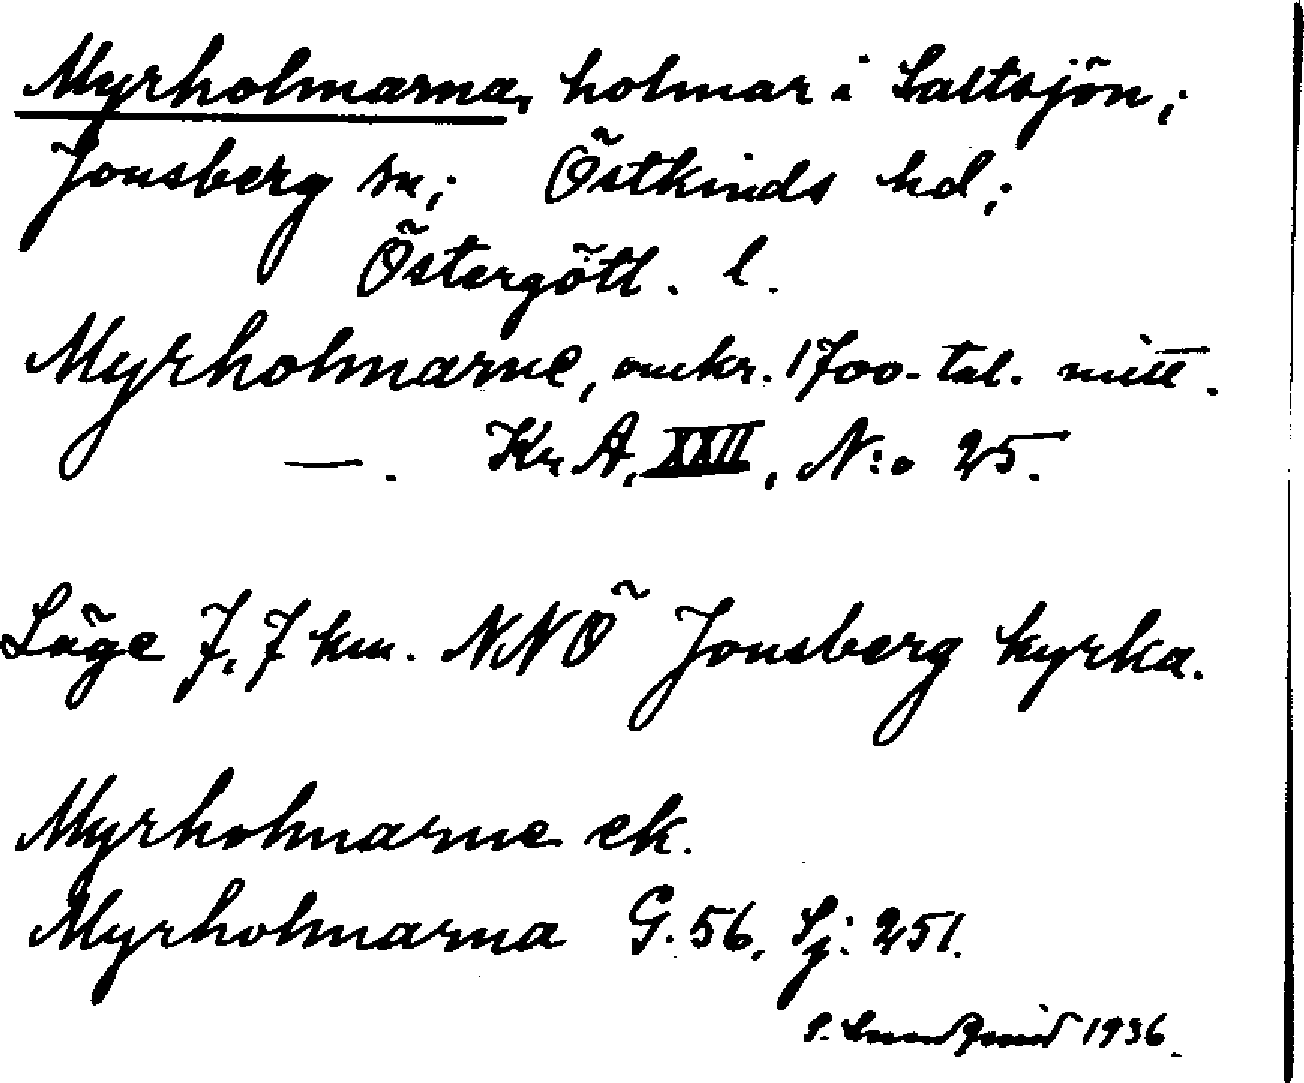 Myrholmarna, holmar i Saltsjön;
Jonsberg sn; Östkinds hd;
Östergötl. l.
Myrholmarne, omkr. 1700-tal. mitt.
—. Kr. A, XXII, N:o 25.
Läge 7,7 km. NNÖ Jonsberg kyrka.
Myrholmarne ek.
Myrholmarna G. 56, Sj: 251.
S. Lundqvist 1936.